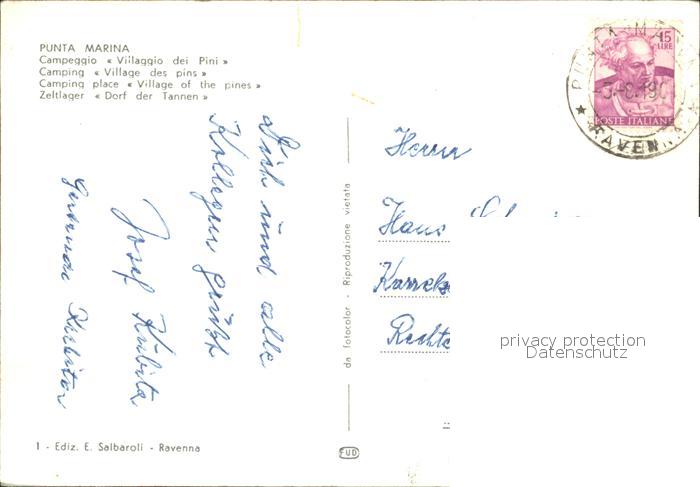 PUNTA MARINA
Campeggio « Villaggio dei Pini »
Camping « Village des pins »
Camping place « Village of the pines »
Zeltlager « Dorf der Tannen »
Dich und alle
Kollegen grüßt
Josef Kubita
15
LIRE
POSTE ITALIANE
PUNTA MA
RAVENNA
Herrn
Hans
da fotocolor - Riproduzione vietata
privacy protection
Datenschutz
1 - Ediz. E. Salbaroli - Ravenna
FUD